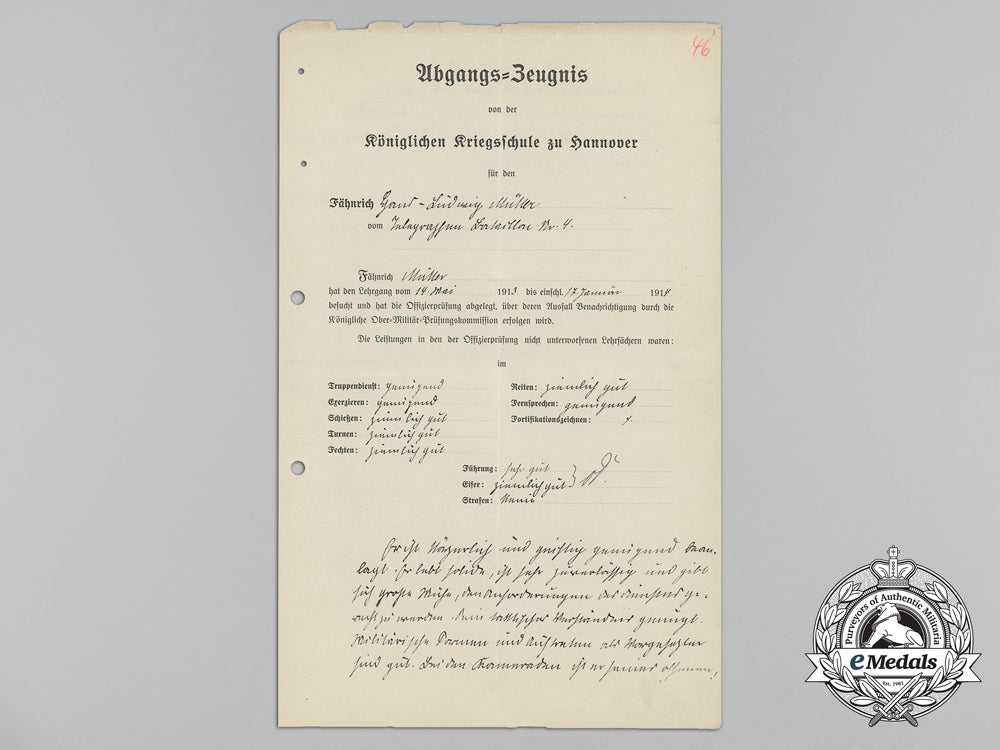 46
Abgangs=Zeugnis
von der
Königlichen Kriegsschule zu Hannover
für den
Fähnrich Hans-Ludwig Müller
vom Telegraphen Bataillon Nr. 4.
Fähnrich Müller
hat den Lehrgang vom 14. Mai 1913 bis einschl. 17. Januar 1914
besucht und hat die Offizierprüfung abgelegt, über deren Ausfall Benachrichtigung durch die
Königliche Ober-Militär-Prüfungskommission erfolgen wird.
Die Leistungen in den der Offizierprüfung nicht unterworfenen Lehrfächern waren:
im
Truppendienst: genügend
Exerzieren: genügend
Schießen: ziemlich gut
Turnen: ziemlich gut
Fechten: ziemlich gut
Reiten: ziemlich gut
Fernsprechen: genügend
Fortifikationszeichnen:
Führung: sehr gut
Eifer: ziemlich gut
Strafen: Keine
Er ist körperlich und geistig genügend bean-
lagt. Er lebt solide, ist sehr zuverlässig und gibt
sich große Mühe, den Anforderungen des Dienstes ge-
recht zu werden. Sein taktisches Verständnis genügt.
Militärische Formen und Auftreten als Vorgesetzter
sind gut. Bei den Kameraden ist er seines offenen,
Purveyors of Authentic Militaria
eMedals
Est. 1981